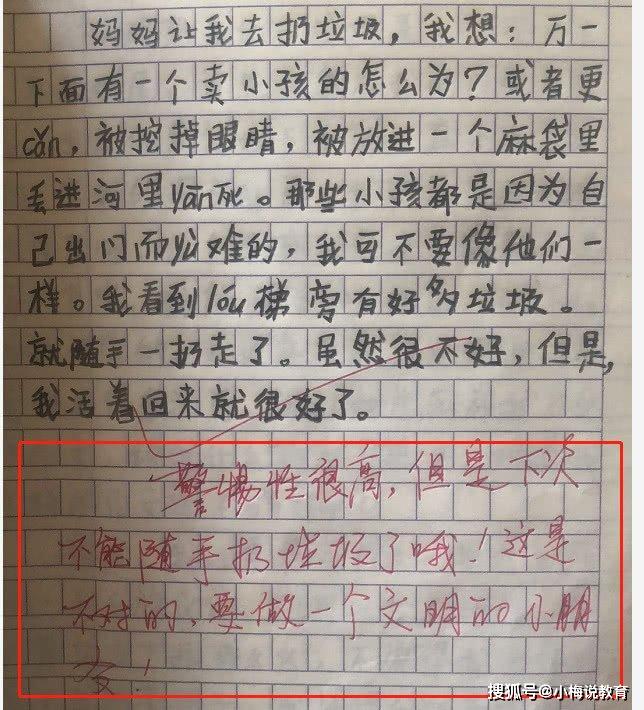 妈妈让我去扔垃圾，我想：万一
下面有一个卖小孩的怎么为？或者更
cǎn，被挖掉眼睛，被放进一个麻袋里
丢进河里yān死。那些小孩都是因为自
己出门而 难的，我可不要像他们一
样。我看到lóu梯旁有好多垃圾。
就随手一扔走了。虽然很不好，但是，
我活着回来就很好了。
警惕性很高，但是下次
不能随手扔垃圾了哦！这是
不对的，要做一个文明的小朋
友！
搜狐号@小梅说教育